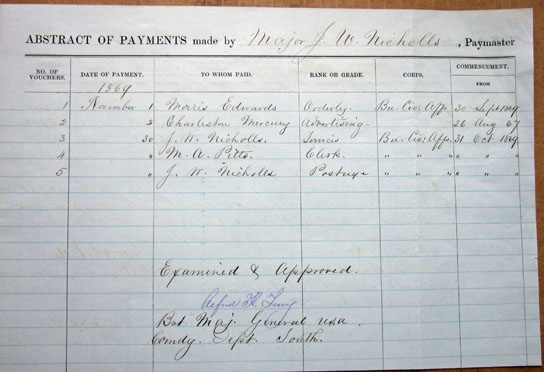 ABSTRACT OF PAYMENTS made by Major J. W. Nicholls, Paymaster
NO. OF VOUCHERS. DATE OF PAYMENT. TO WHOM PAID. RANK OR GRADE. CORPS. COMMENCEMENT. FROM
1869
1 November 1 Morris Edwards Orderly. Bu. Civ. Affs. 30 Sept 1869
2 2 Charleston Mercury Advertising. 26 Aug 67
3 30 J. W. Nicholls. Bu. Civ. Affs. 31 Oct 1869
4 " M. A. Pitts. Clerk. " " " " "
5 " J. W. Nicholls Postage " " " " "
Examined & Approved.
Alfred H. Terry
Bvt Maj. General USA.
Comdg. Dept South.